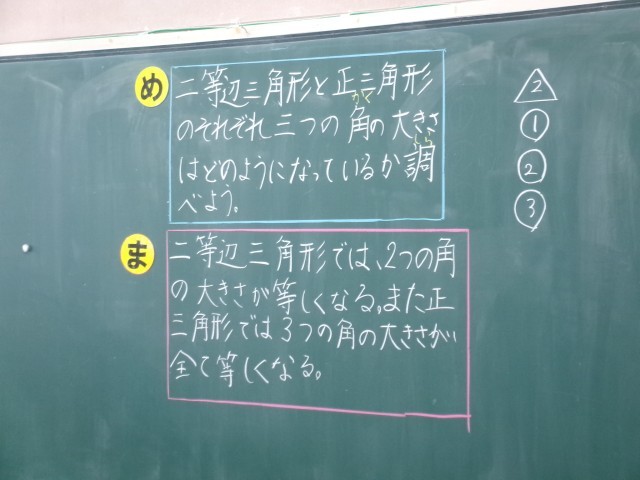 め
二等辺三角形と正三角形
かく
のそれぞれ三つの角の大きさ
しら
はどのようになっているか調
べよう。
ま
二等辺三角形では、2つの角
の大きさが等しくなる。また正
三角形では3つの角の大きさが
全て等しくなる。
2
①
②
③